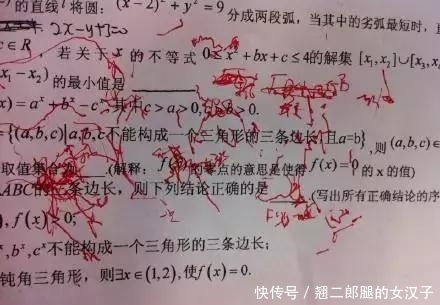 的直线l将圆:(x-2)²+y²=9分成两段弧,当其中的劣弧最短时,直
2x-y+3=0
c∈R 若关于x的不等式0≤x²+bx+c≤4的解集[x₁,x₂]∪[x₃,x
x₁-x₂)的最小值是
x)=aˣ+bˣ-cˣ,其中c>a>0,c>b>0.
={(a,b,c)|a,b,c不能构成一个三角形的三条边长,且a=b},则(a,b,c)∈
取值集合为 .(解释:f(x)的零点的意思是使得f(x)=0的x的值)
ABC的三条边长,则下列结论正确的是 (写出所有正确结论的序
),f(x)>0;
ˣ,bˣ,cˣ不能构成一个三角形的三条边长;
钝角三角形,则∃x∈(1,2),使f(x)=0.
快传号/翘二郎腿的女汉子